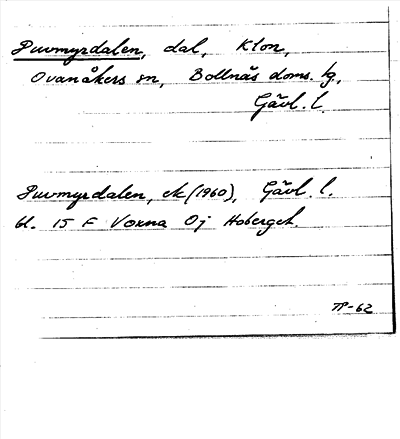 Puvmyrdalen, dal, Klon,
Ovanåkers sn, Bollnäs doms. kg,
Gävl. l.
Puvmyrdalen, ek (1960), Gävl. l.
bl. 15 F Voxna Oj Hoberget.
TP-62